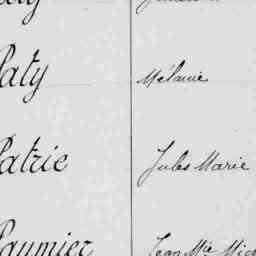 Paty Mélanie
Patrie Jules Marie
Paumier Jean Mie